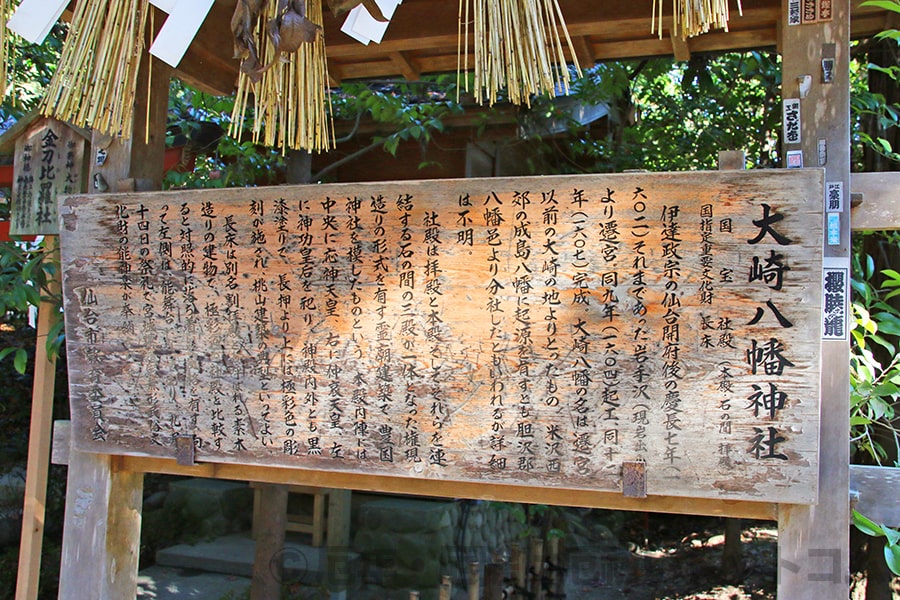 大崎八幡神社
国宝 社殿(本殿、石の間、拝殿)
国指定重要文化財 長床
伊達政宗の仙台開府後の慶長七年(一
六〇二)それまであった岩手沢(現岩出山)
より遷宮、同九年(一六〇四)起工、同十二
年(一六〇七)完成。大崎八幡の名は遷宮
以前の大崎の地よりとったもの。米沢西
郊の成島八幡に起源を有すとも胆沢郡
八幡邑より分社したともいわれるが詳細
は不明。
社殿は拝殿と本殿そしてそれらを連
結する石の間の三殿が一体となった権現
造りの形式を有す霊廟建築で、豊国
神社を模したものという。本殿内陣には
中央に応神天皇、右に仲哀天皇、左
に神功皇后を祀り、神殿内外とも黒
漆塗りで、長押より上には極彩色の彫
刻が施され、桃山建築の
長床は別名割
れる素木
造りの建物で、極彩
社殿と比較す
ると対照的
って左側は能
十四日の祭礼で
化財の能神楽が奉
仙台市教育委員会
金刀比羅社
櫻睦龍